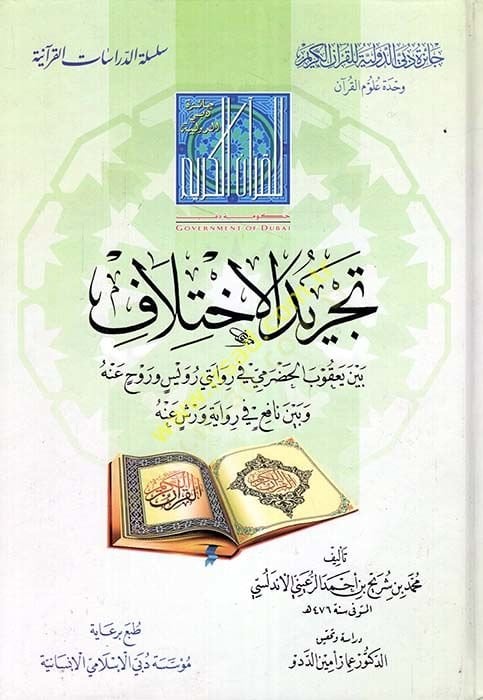 جائزة دبي الدولية للقرآن الكريم
وحدة علوم القرآن
سلسلة الدراسات القرآنية
جائزة دبي الدولية
للقرآن الكريم
حكومة دبي
GOVERNMENT OF DUBAI
تجريد الاختلاف
بين يعقوب الحضرمي في روايتي رويس وروح عنه
وبين نافع في رواية ورش عنه
القرآن الكريم
القرآن الكريم
تأليف
محمد بن شريح بن احمد الرعيني الاندلسي
المتوفى سنة ٤٧٦هـ
دراسة وتحقيق
الدكتور عمار أمين الددو
طبع برعاية
مؤسسة دبي الإسلامي الإنسانية